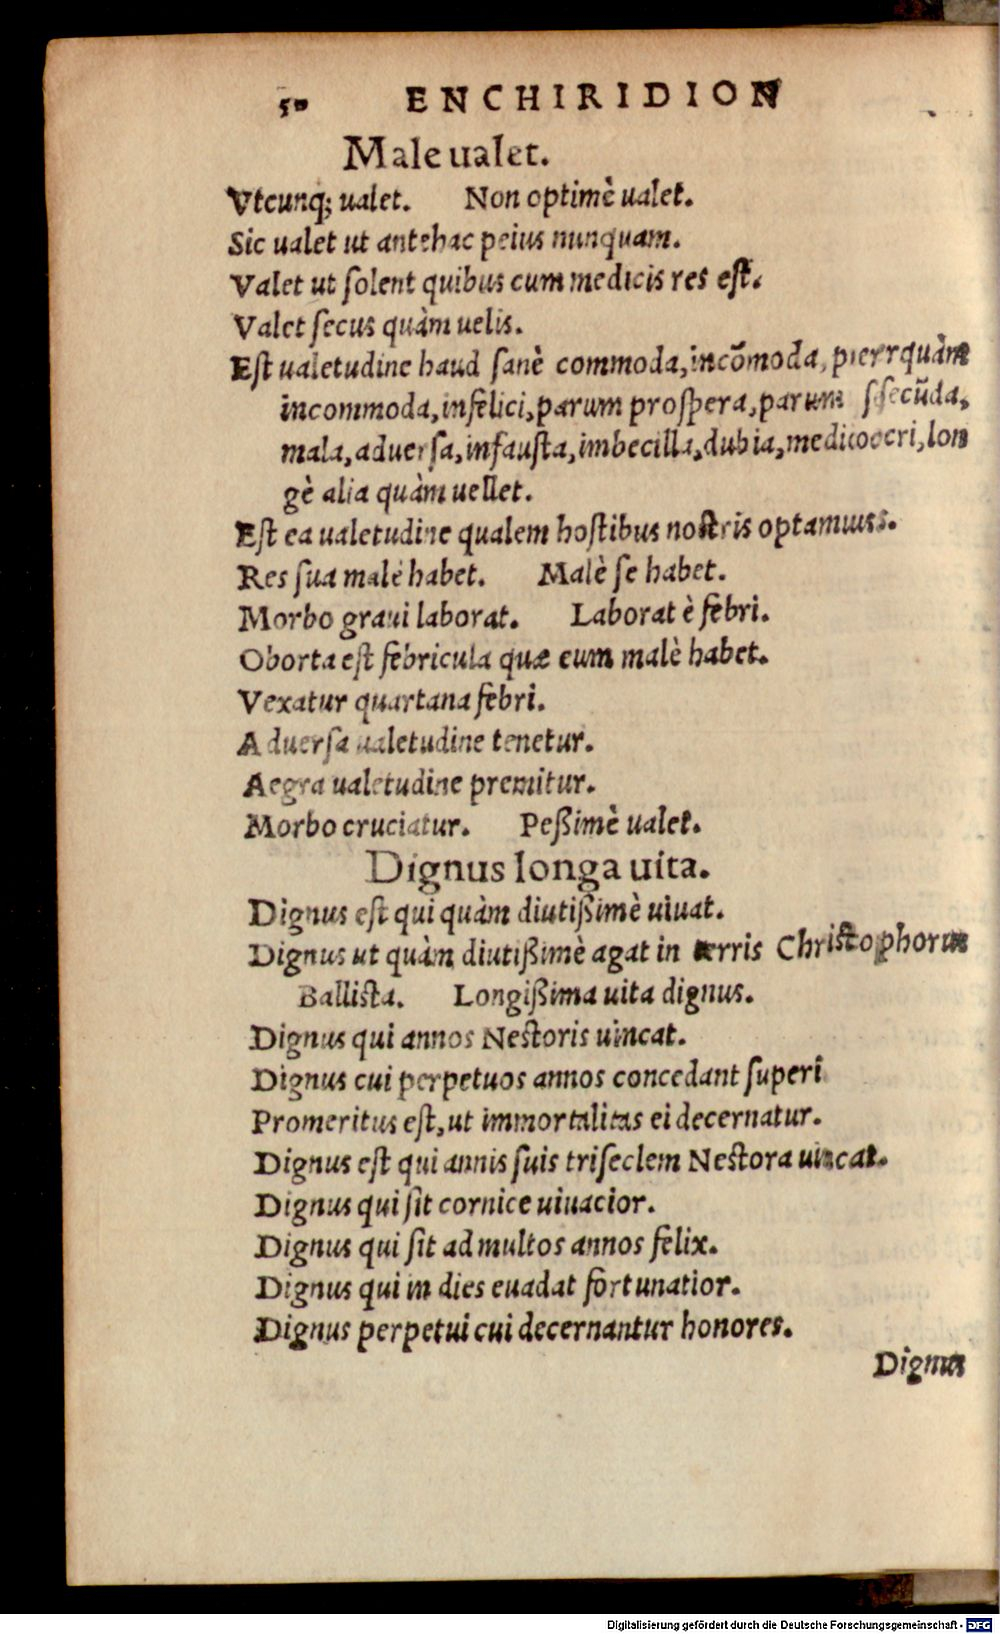 50 ENCHIRIDION
Male ualet.
Vtcunq; ualet. Non optimè ualet.
Sic ualet ut antehac peius nunquam.
Valet ut ſolent quibus cum medicis res eſt.
Valet ſecus quàm uelis.
Eſt ualetudine haud ſanè commoda, incõmoda,
incommoda, infelici, parum proſpera, parum ſecũda,
mala, aduerſa, infauſta, imbecilla, dubia, mediocri, lon
gè alia quàm uellet.
Eſt ea ualetudine qualem hoſtibus noſtris optamus.
Res ſua malè habet. Malè ſe habet.
Morbo graui laborat. Laborat è febri.
Oborta eſt febricula quæ eum malè habet.
Vexatur quartana febri.
Aduerſa ualetudine tenetur.
Aegra ualetudine premitur.
Morbo cruciatur. Peßimè ualet.
Dignus longa uita.
Dignus eſt qui quàm diutißimè uiuat.
Dignus ut quàm diutißimè agat in terris Chriſtophorus
Balliſta. Longißima uita dignus.
Dignus qui annos Neſtoris uincat.
Dignus cui perpetuos annos concedant ſuperi
Promeritus eſt, ut immortalitas ei decernatur.
Dignus eſt qui annis ſuis triſeclem Neſtora uincat.
Dignus qui ſit cornice uiuacior.
Dignus qui ſit ad multos annos felix.
Dignus qui in dies euadat fortunatior.
Dignus perpetui cui decernantur honores.
Dignus
Digitalisierung gefördert durch die Deutsche Forschungsgemeinschaft - DFG